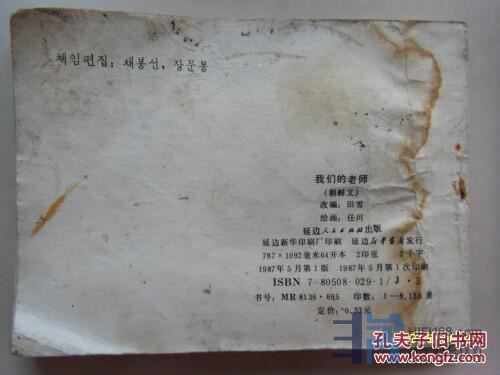 책임편집: 채봉선, 장문봉
我们的老师
(朝鲜文)
改编:田雪
绘画:任川
延边人民出版社出版
延边新华印刷厂印刷 延边新华书店发行
787×1092毫米64开本 2印张 2千字
1987年5月第1版 1987年5月第1次印刷
ISBN 7-80508-029-1/J·3
书号: MR8136·695 印数: 1—8,130册
定价: 0.33元
孔夫子旧书网